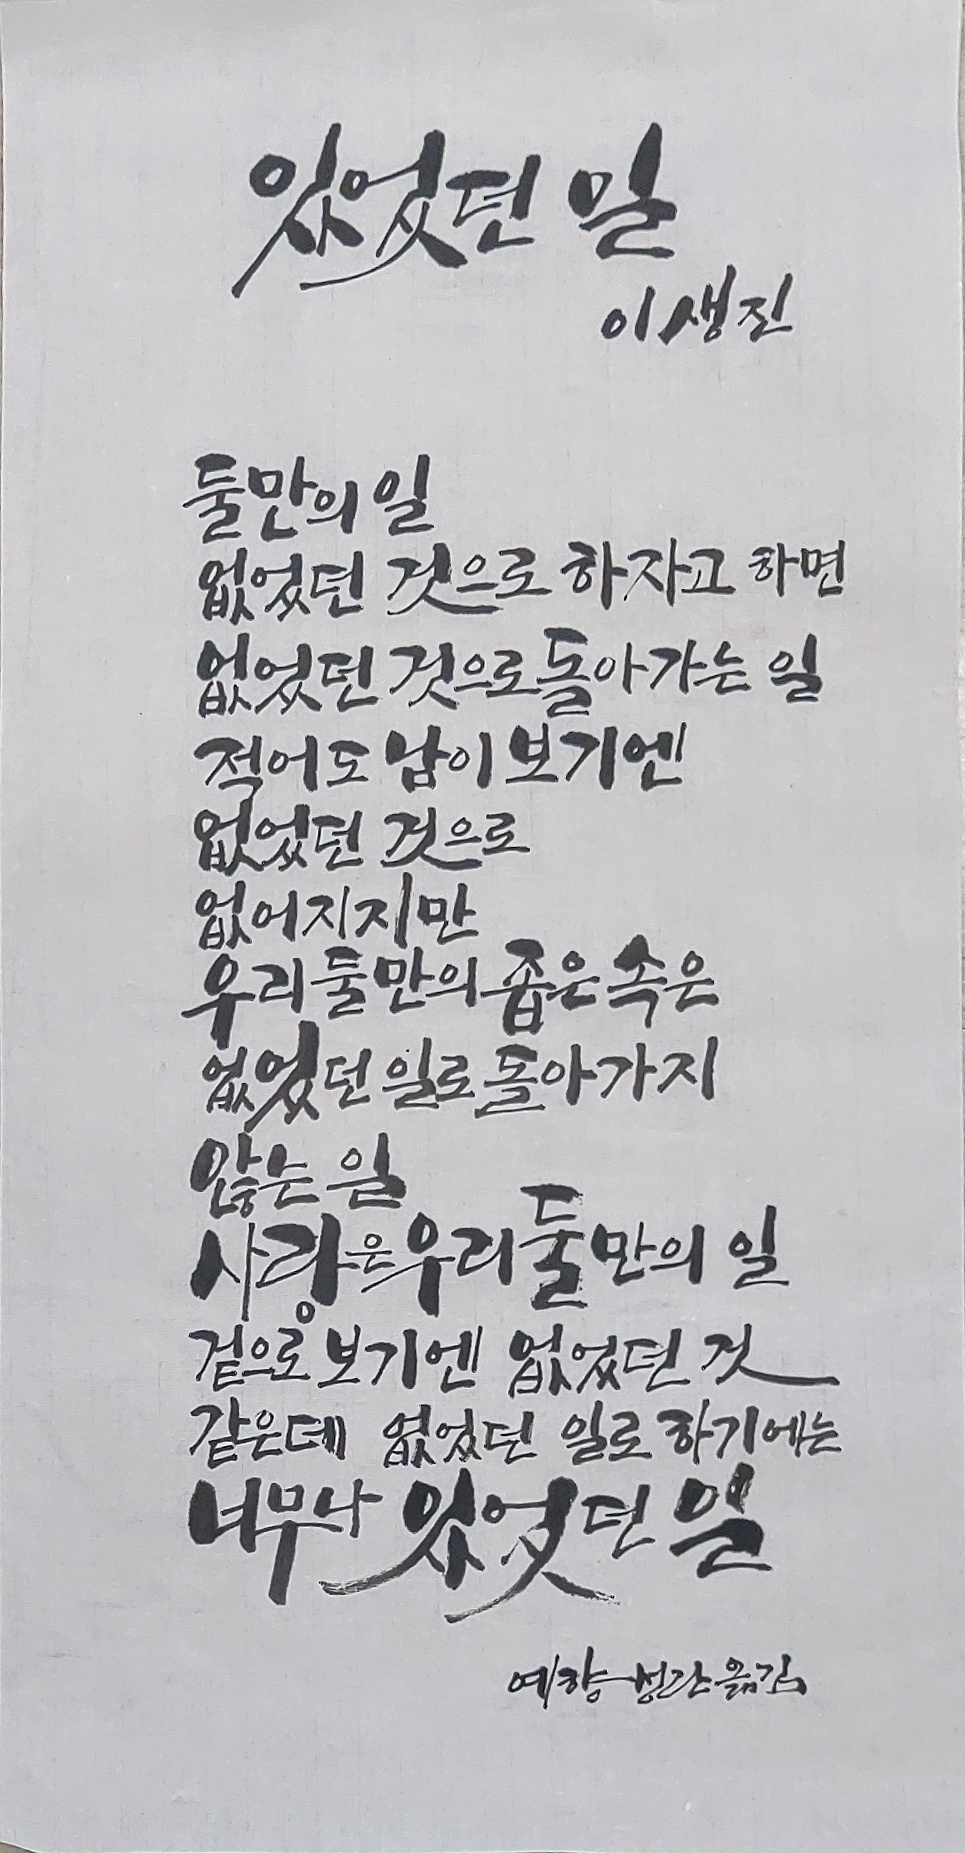 있었던 일
이생진
둘만의 일
없었던 것으로 하자고 하면
없었던 것으로 돌아가는 일
적어도 남이 보기엔
없었던 것으로
없어지지만
우리 둘만의 좁은 속은
없었던 일로 돌아가지
않는 일
사랑은 우리 둘만의 일
겉으로 보기엔 없었던 것
같은데 없었던 일로 하기에는
너무나 있었던 일
예향 옮김